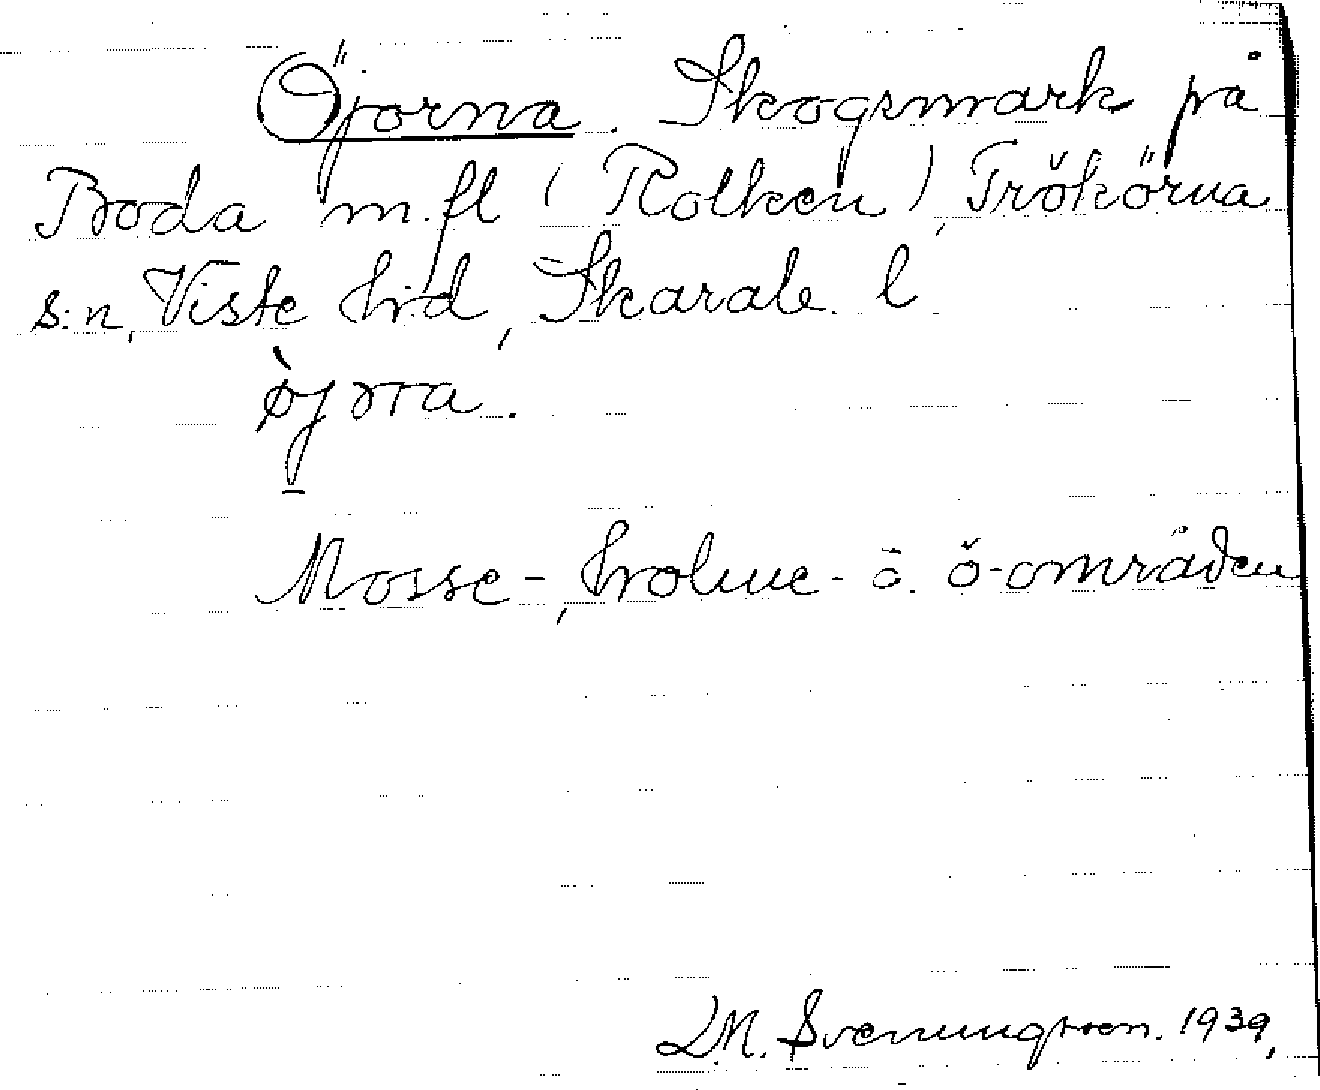 Öjorna. Skogsmark på
Boda m.fl (Rolken), Trökörna
s:n, Viste hrd, Skarab. l
ø̀jɔrna.
Mosse-, holme- o. ö-områden
D.M. Svenningsson. 1939.